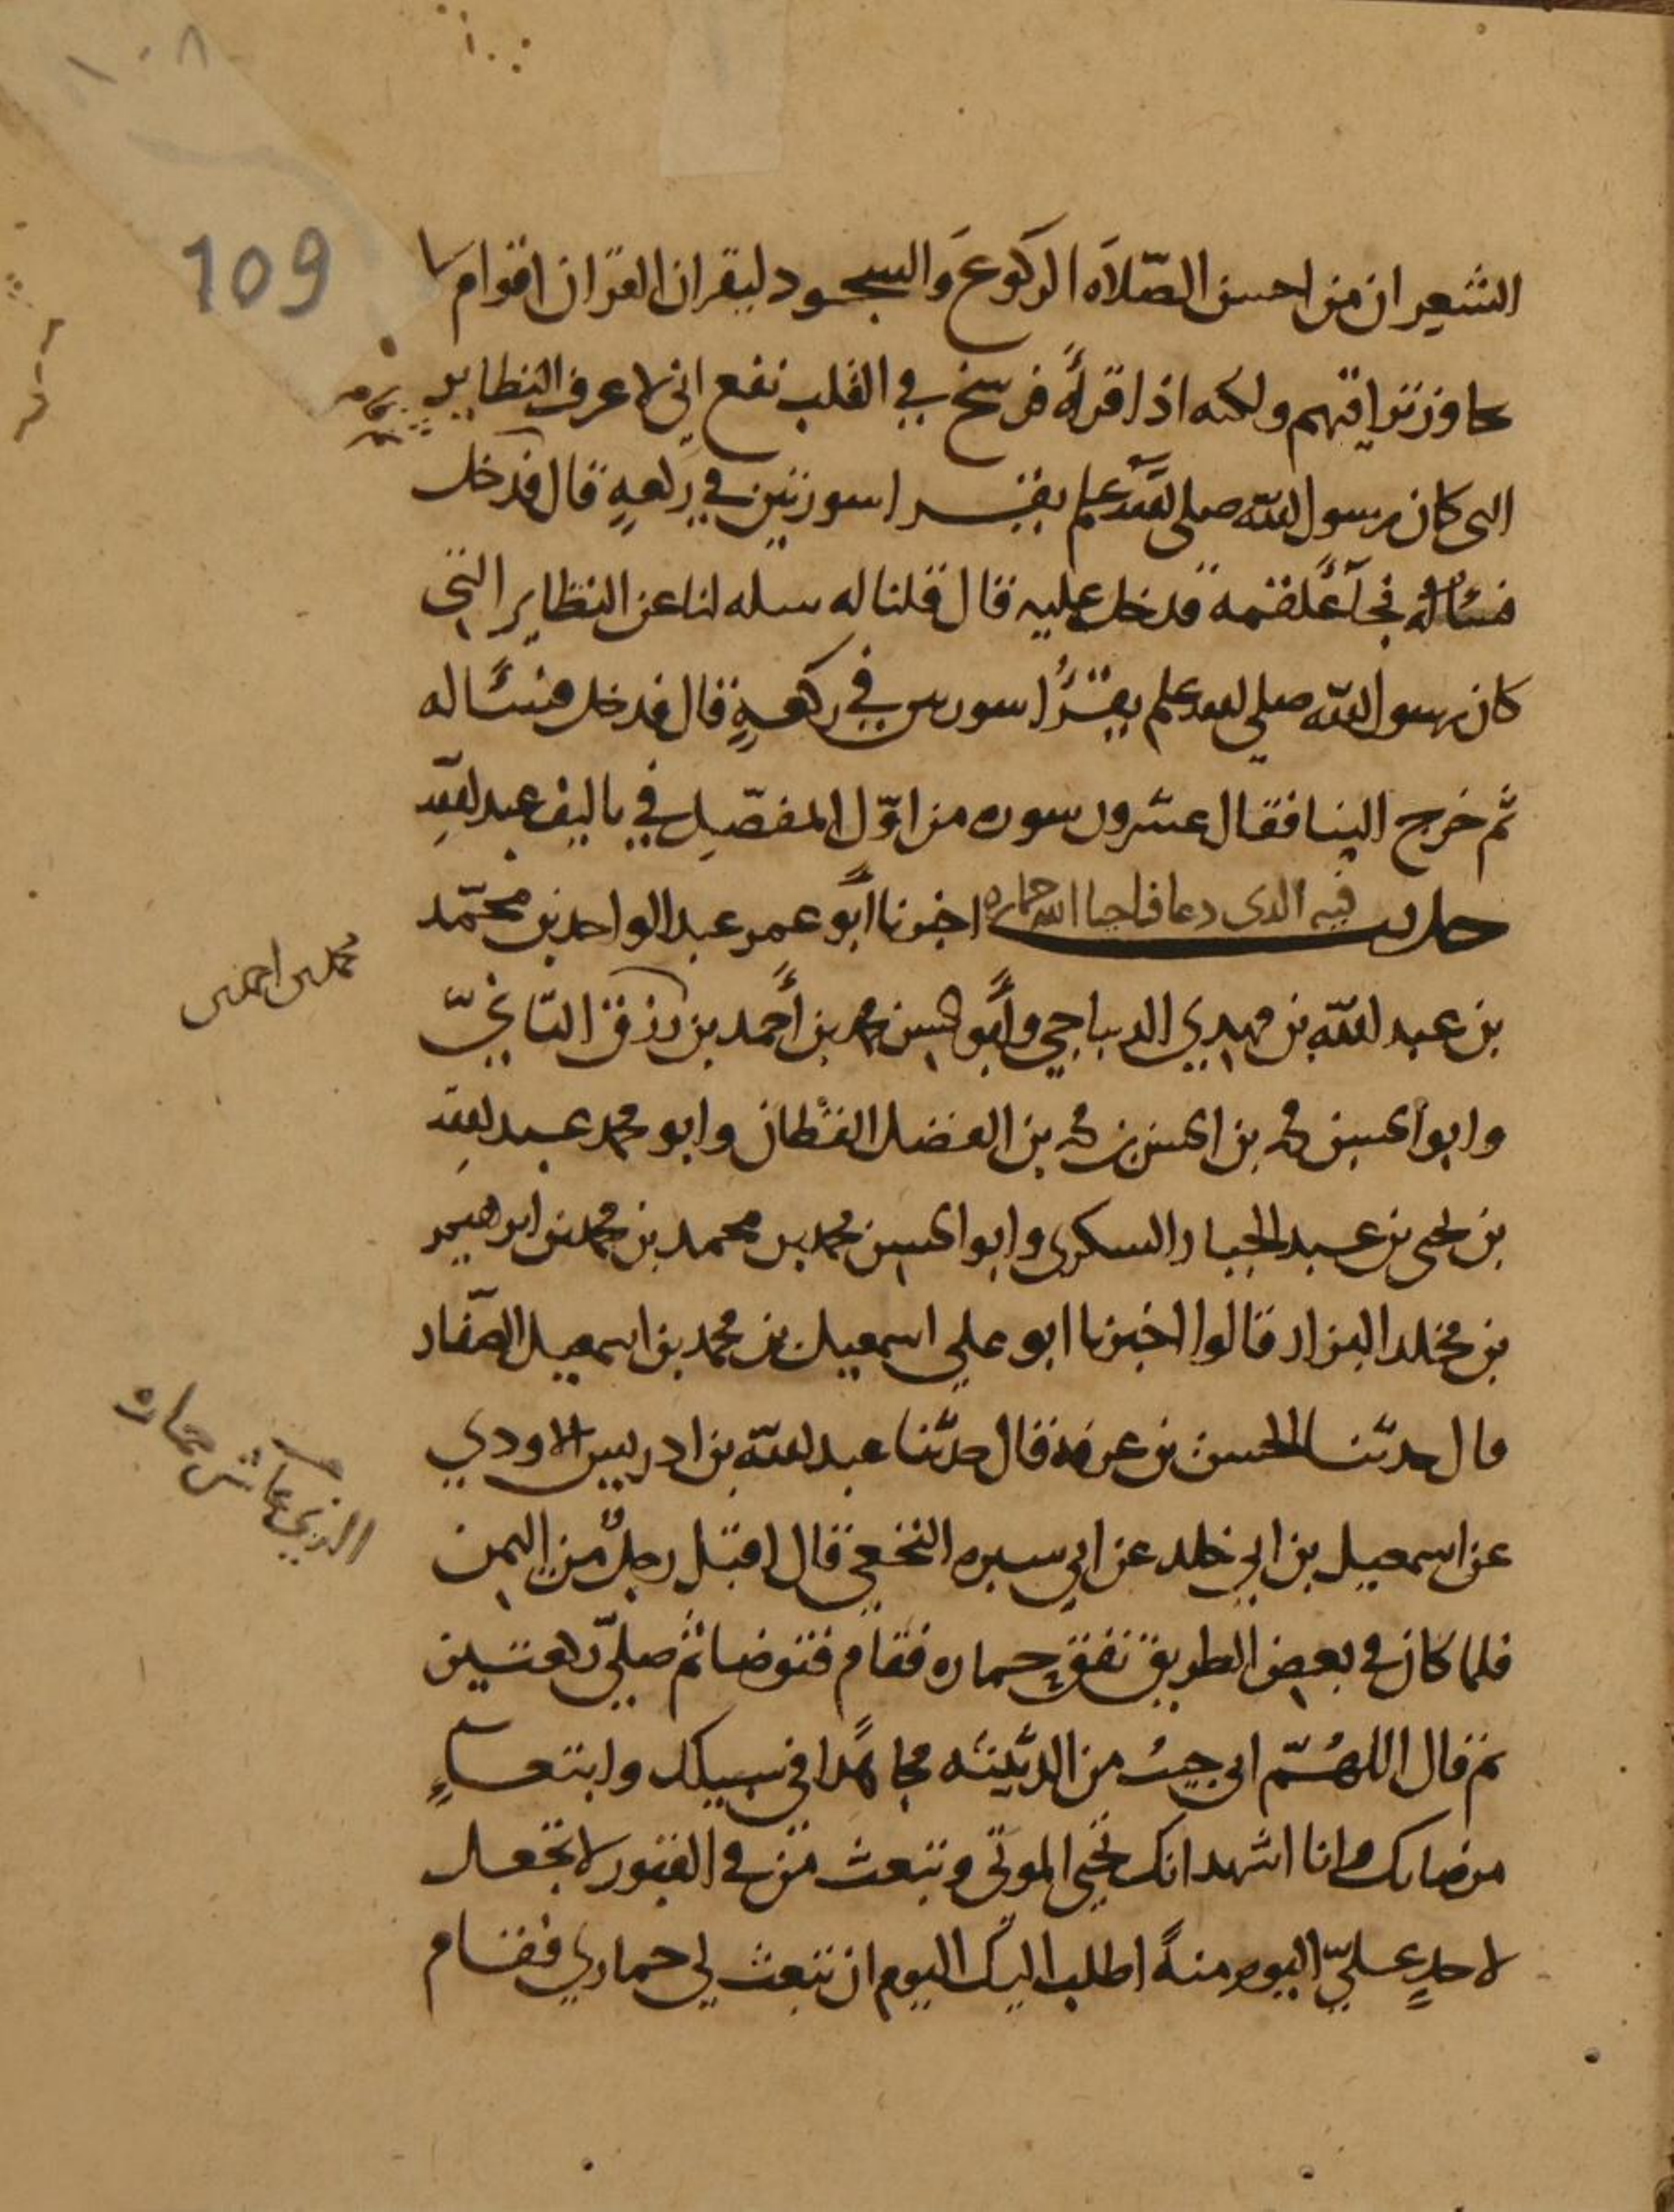 ١٠٨
109
الشعير ان من احسن الصّلاَه الركوعَ وَالسجود ليقران القران اقوام لا
يجاوز تراقيهم ولكنه اذا قرأه فرسخ في القلب نفع اني لاعرف النظاير
التي كان رسول الله صلى الله عليه وسلم يقرا سورتين في ركعةٍ قال فدخل
فسأله فجآء علقمة فدخل عليه قال قلنا له سله لنا عن النظاير التي
كان رسول الله صلي الله عليه وسلم يقرُا سورتين في ركعةٍ قال فدخل فسأله
ثم خرج الينا فقال عشرون سوره من اوّل المفصّل في تاليف عبد اللهِ
حديث فيه الذى دعا فاحيا الله حماره اخبرنا أبو عمر عبد الواحد بن محمّد
بن عبد الله بن مهدي الديباجي وأبو الحسن محمد بن أحمد بن رزق التاني
محمد بن احمد بن
وابو الحسين محمد بن الحسن بن محمد بن الفضل القطان وابو محمد عبد الله
بن يحيى بن عبد الجبار السكرى وابو الحسن محمد بن محمد بن محمد بن ابرهيم
بن مخلد البزار قالوا اخبرنا ابو علي اسمعيل بن محمد بن اسمعيل الصفّار
قال حدثنا الحسن بن عرفة قال حدّثنا عبد الله بن ادريس الاودي
الذي عاش حماره
عن اسمعيل بن ابي خلد عن ابي سبره النخعي قال اقبل رجلٌ من اليمن
فلما كان في بعض الطريق نفق حماره فقام فتوضا ثم صلّي ركعتين
ثم قال اللهُمّ اني جيتُ من الدثينه مجاهدًا في سبيلك وابتغاءِ
مرضاتك وانا اشهد انك تحيي الموتي وتبعث من في القبور لا تجعل
لاحدٍ عليّ اليوم منةً اطلب اليك اليوم ان تبعث لي حماري فقام